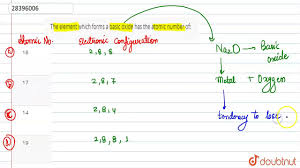 28396006
The element which forms a basic oxide has the atomic number of:
Atomic No. Electronic Configuration
18 2,8,8
17 2,8,7
14 2,8,4
19 2,8,8,1
Na₂O → Basic
oxide
Metal + Oxygen
tendency to lose
doubtnut